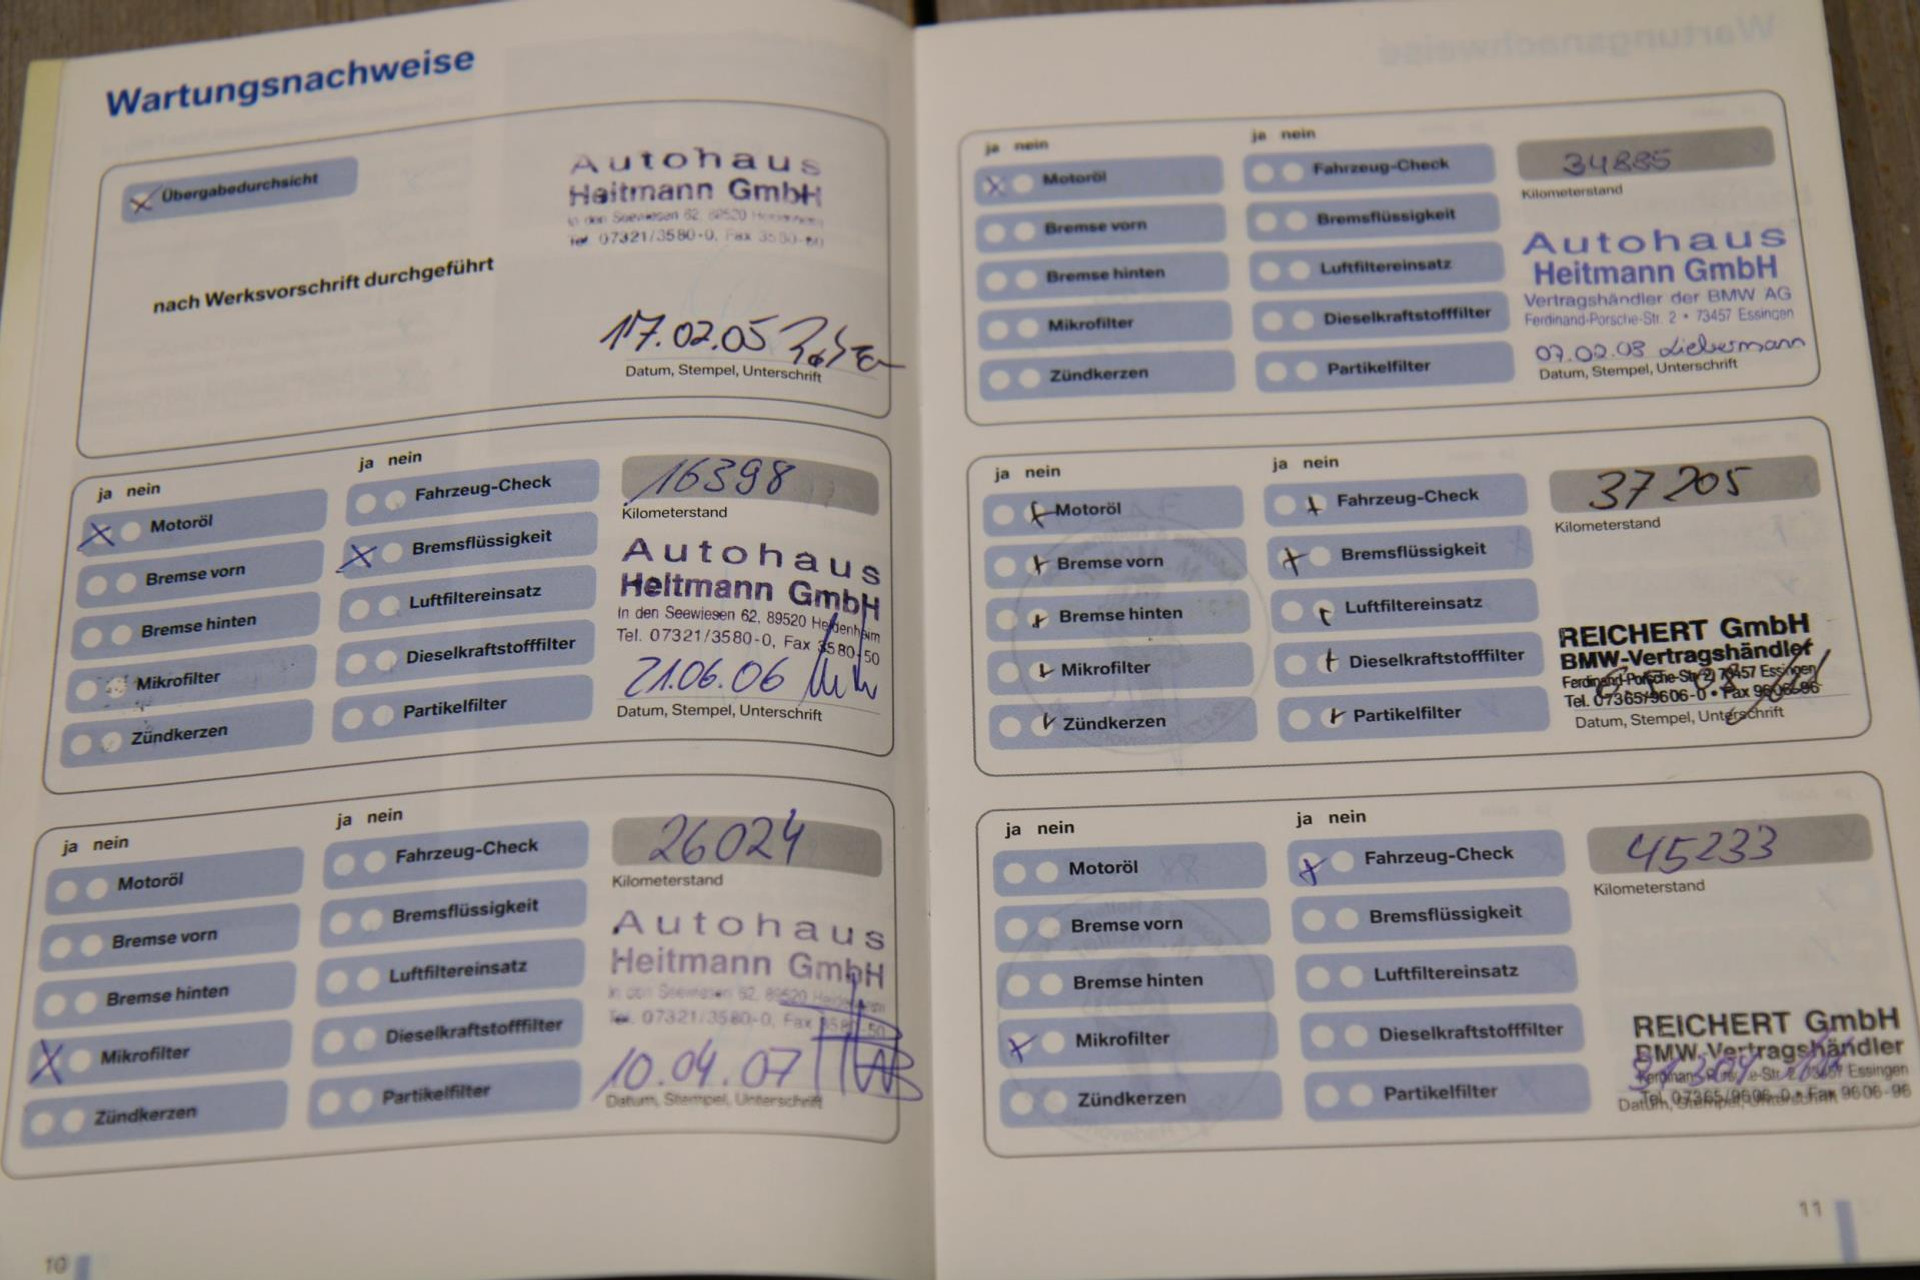 Wartungsnachweise
Übergabedurchsicht
nach Werksvorschrift durchgeführt
Autohaus
Heitmann GmbH
In den Seewiesen 62, 89520 Heidenheim
Tel. 07321/3580-0, Fax 3580-50
17.02.05
Datum, Stempel, Unterschrift
ja nein
Motoröl
Bremse vorn
Bremse hinten
Mikrofilter
Zündkerzen
ja nein
Fahrzeug-Check
Bremsflüssigkeit
Luftfiltereinsatz
Dieselkraftstofffilter
Partikelfilter
16398
Kilometerstand
Autohaus
Heitmann GmbH
In den Seewiesen 62, 89520 Heidenheim
Tel. 07321/3580-0, Fax 3580-50
21.06.06
Datum, Stempel, Unterschrift
ja nein
Motoröl
Bremse vorn
Bremse hinten
Mikrofilter
Zündkerzen
ja nein
Fahrzeug-Check
Bremsflüssigkeit
Luftfiltereinsatz
Dieselkraftstofffilter
Partikelfilter
26024
Kilometerstand
Autohaus
Heitmann GmbH
In den Seewiesen 62, 89520 Heidenheim
Tel. 07321/3580-0, Fax 3580-50
10.04.07
Datum, Stempel, Unterschrift
10
ja nein
Motoröl
Bremse vorn
Bremse hinten
Mikrofilter
Zündkerzen
ja nein
Fahrzeug-Check
Bremsflüssigkeit
Luftfiltereinsatz
Dieselkraftstofffilter
Partikelfilter
34885
Kilometerstand
Autohaus
Heitmann GmbH
Vertragshändler der BMW AG
Ferdinand-Porsche-Str. 2 • 73457 Essingen
Liebermann
Datum, Stempel, Unterschrift
ja nein
Motoröl
Bremse vorn
Bremse hinten
Mikrofilter
Zündkerzen
ja nein
Fahrzeug-Check
Bremsflüssigkeit
Luftfiltereinsatz
Dieselkraftstofffilter
Partikelfilter
37205
Kilometerstand
REICHERT GmbH
BMW-Vertragshändler
Ferdinand-Porsche-Str. 2, 73457 Essingen
Tel. 07365/9606-0 • Fax 9606-96
Datum, Stempel, Unterschrift
ja nein
Motoröl
Bremse vorn
Bremse hinten
Mikrofilter
Zündkerzen
ja nein
Fahrzeug-Check
Bremsflüssigkeit
Luftfiltereinsatz
Dieselkraftstofffilter
Partikelfilter
45233
Kilometerstand
REICHERT GmbH
BMW-Vertragshändler
Ferdinand-Porsche-Str. 2, 73457 Essingen
Tel. 07365/9606-0 • Fax 9606-96
Datum, Stempel, Unterschrift
11